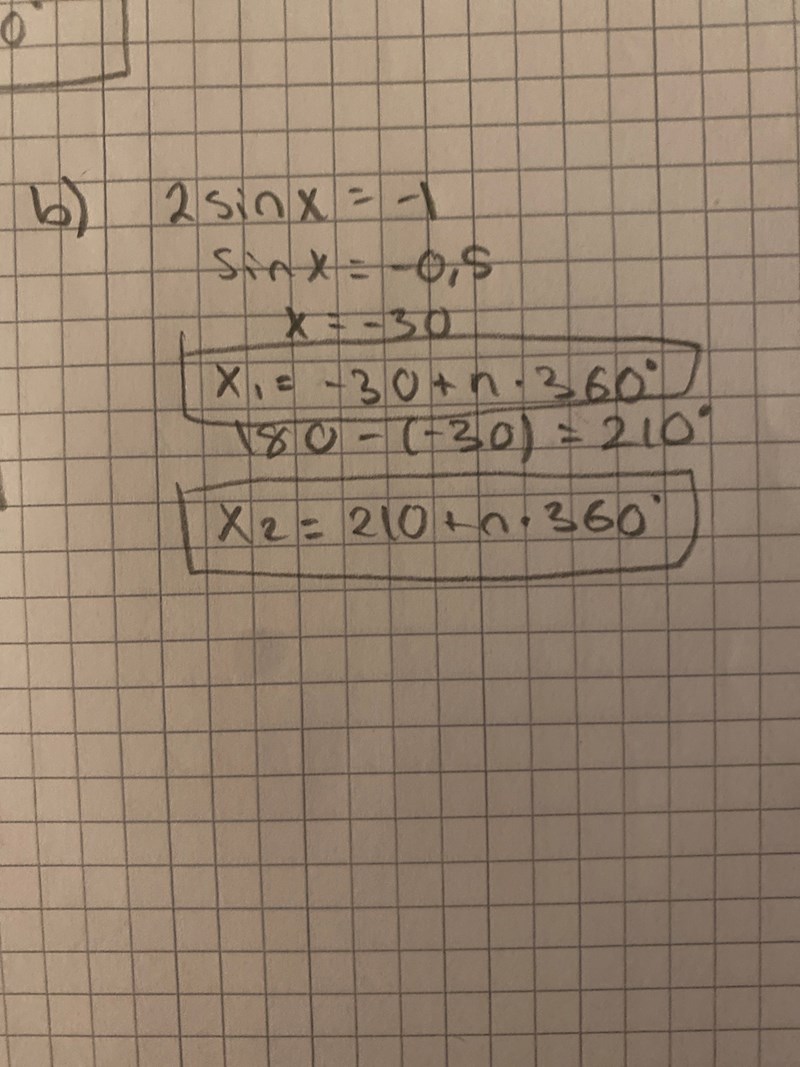 0°
b) 2 sin x = -1
sin x = -0,5
x = -30
x₁ = -30 + n · 360°
180 - (-30) = 210°
x₂ = 210 + n · 360°